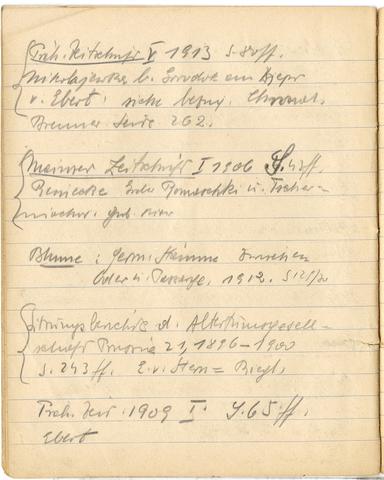 Präh. Zeitschrift V 1913 S. 80 ff.
b. am Dnjepr
v. Ebert: siehe bezügl. Chronol.
Brenner Seite 262.
Mainzer Zeitschrift I 1906 S. 42 ff.
Reinecke Romaschki u. Tscher-
Blume: Germ. Stämme zwischen
Oder u. Passarge. 1912.
Sitzungsberichte d. Altertumsgesell-
schaft Prussia 21, 1896-1900
S. 243 ff. E. v. Stern = Riegl.
Präh. Zeit. 1909 I. S. 65 ff.
Ebert